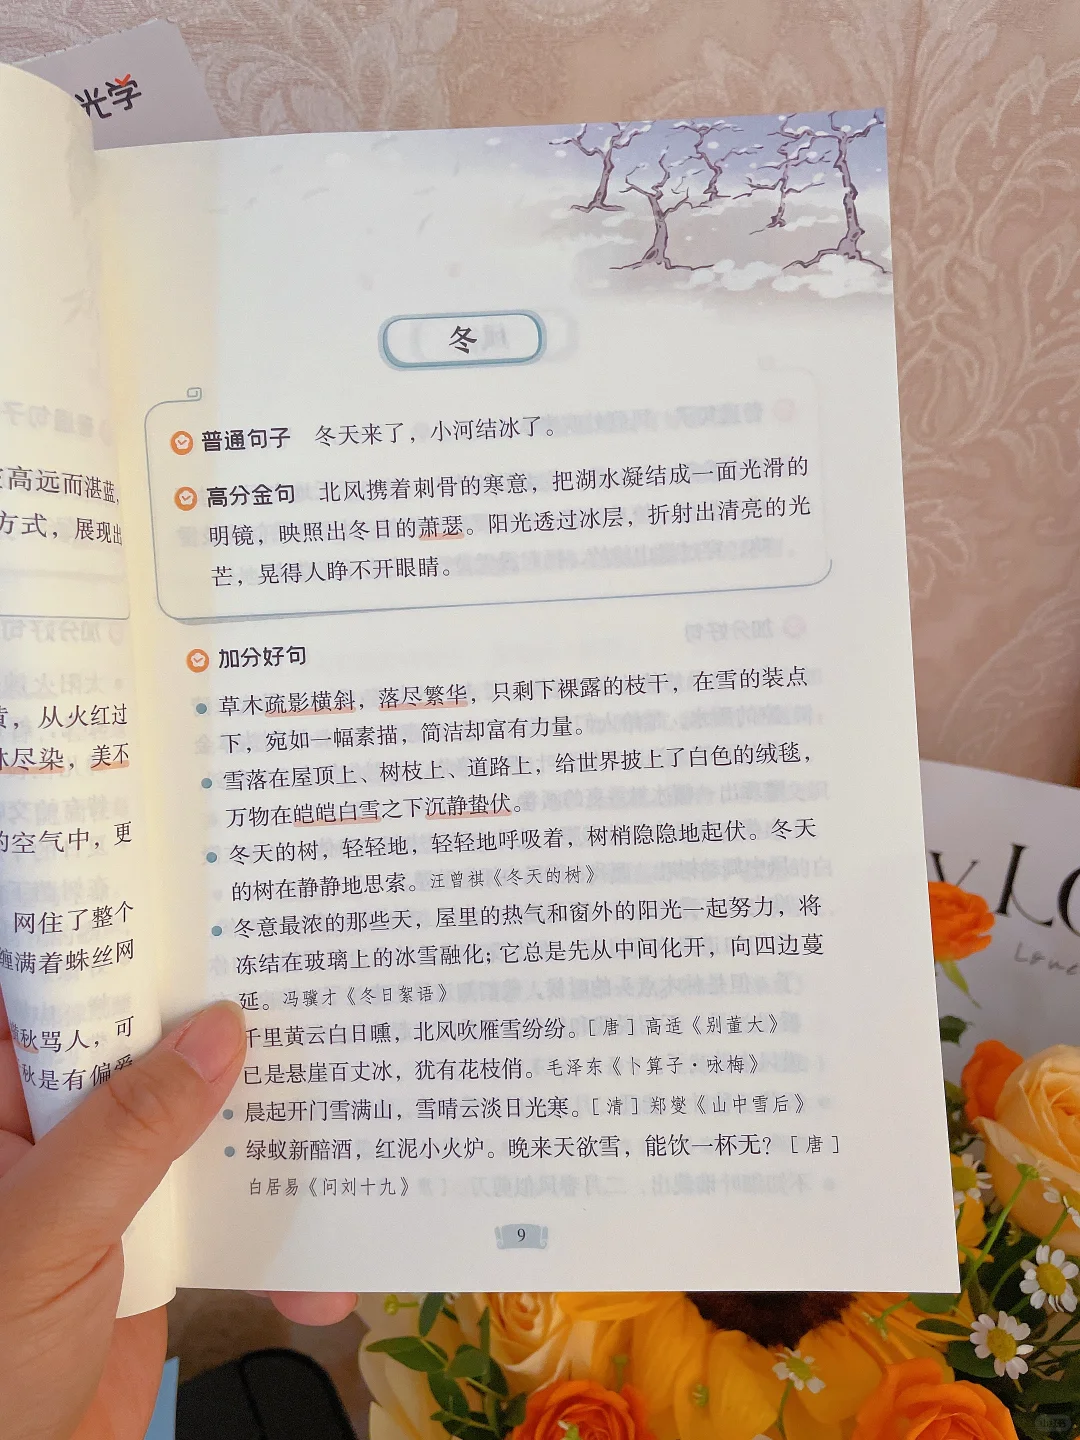 光学
在高远而湛蓝，
方式，展现出
黄，从火红过
林尽染，美不
的空气中，更
网住了整个
缠满着蛛丝网
秋骂人，可
秋是有偏爱
冬
普通句子 冬天来了，小河结冰了。
高分金句 北风携着刺骨的寒意，把湖水凝结成一面光滑的
明镜，映照出冬日的萧瑟。阳光透过冰层，折射出清亮的光
芒，晃得人睁不开眼睛。
加分好句
草木疏影横斜，落尽繁华，只剩下裸露的枝干，在雪的装点
下，宛如一幅素描，简洁却富有力量。
雪落在屋顶上、树枝上、道路上，给世界披上了白色的绒毯，
万物在皑皑白雪之下沉静蛰伏。
冬天的树，轻轻地，轻轻地呼吸着，树梢隐隐地起伏。冬天
的树在静静地思索。汪曾祺《冬天的树》
冬意最浓的那些天，屋里的热气和窗外的阳光一起努力，将
冻结在玻璃上的冰雪融化；它总是先从中间化开，向四边蔓
延。冯骥才《冬日絮语》
千里黄云白日曛，北风吹雁雪纷纷。［唐］高适《别董大》
已是悬崖百丈冰，犹有花枝俏。毛泽东《卜算子·咏梅》
晨起开门雪满山，雪晴云淡日光寒。［清］郑燮《山中雪后》
绿蚁新醅酒，红泥小火炉。晚来天欲雪，能饮一杯无？［唐］
白居易《问刘十九》
9
小红书